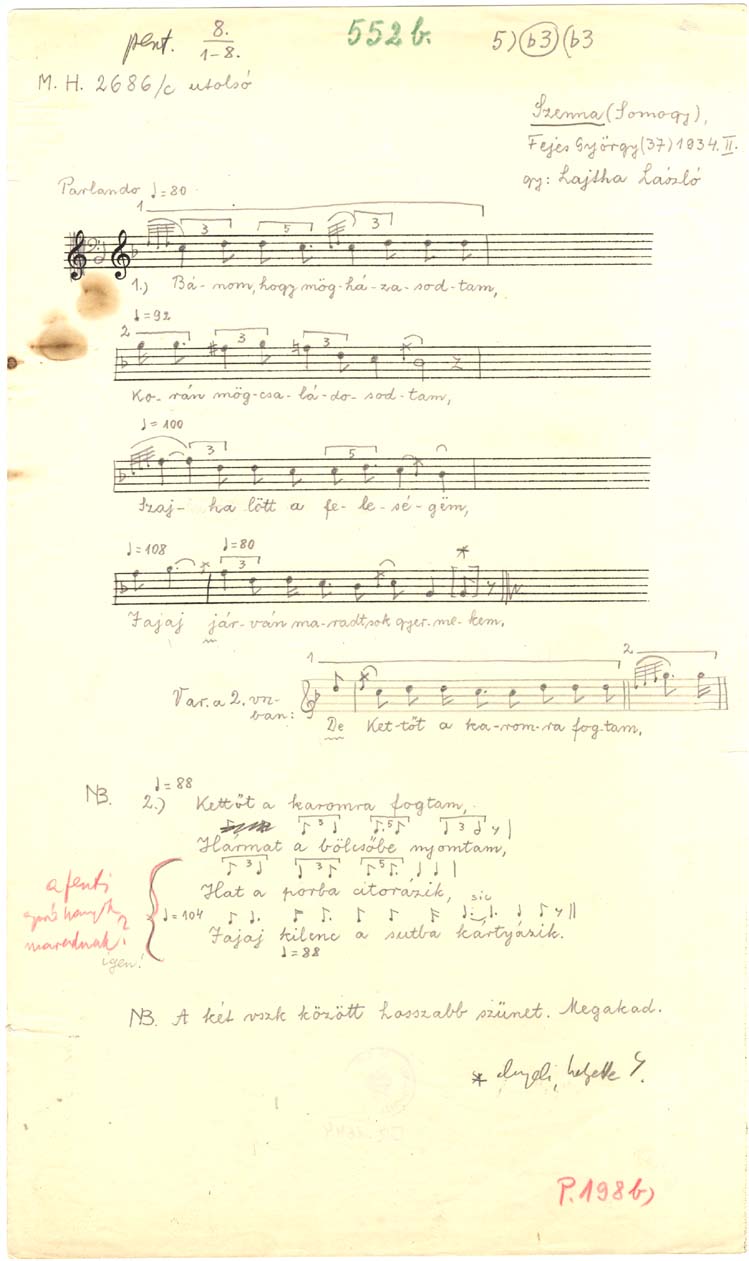 pent. 8. / 1-8.
552 b.
5) (b3) (b3
M. H. 2686/c utolsó
Szenna (Somogy),
Fejes György (37) 1934. II.
gy: Lajtha László
Parlando ♩=80
1
3 5 3
1.) Bá- nom, hogy mög-há- za- sod- tam,
♩=92
2
3 3
Ko- rán mög-csa- lá- do- sod- tam,
♩=100
3 5
Szaj- ha lött a fe- le- sé- gëm,
♩=108 ♩=80 *
3
Jajaj jár- ván ma- radt, sok gyer- me- kem.
1 2
Var. a 2. vsz-
ban:
De Ket-tőt a ka-rom-ra fog-tam,
♩=88
NB. 2.) Kettőt a karomra fogtam,
3 5 3
Hármat a bölcsőbe nyomtam,
3 3 5
Hat a porba citorázik,
a fenti
maradnak?
igen!
sic
♩=104
Jajaj kilenc a sutba kártyázik.
♩=88
NB. A két vszk között hosszabb szünet. Megakad.
* helyette
P. 198 b)